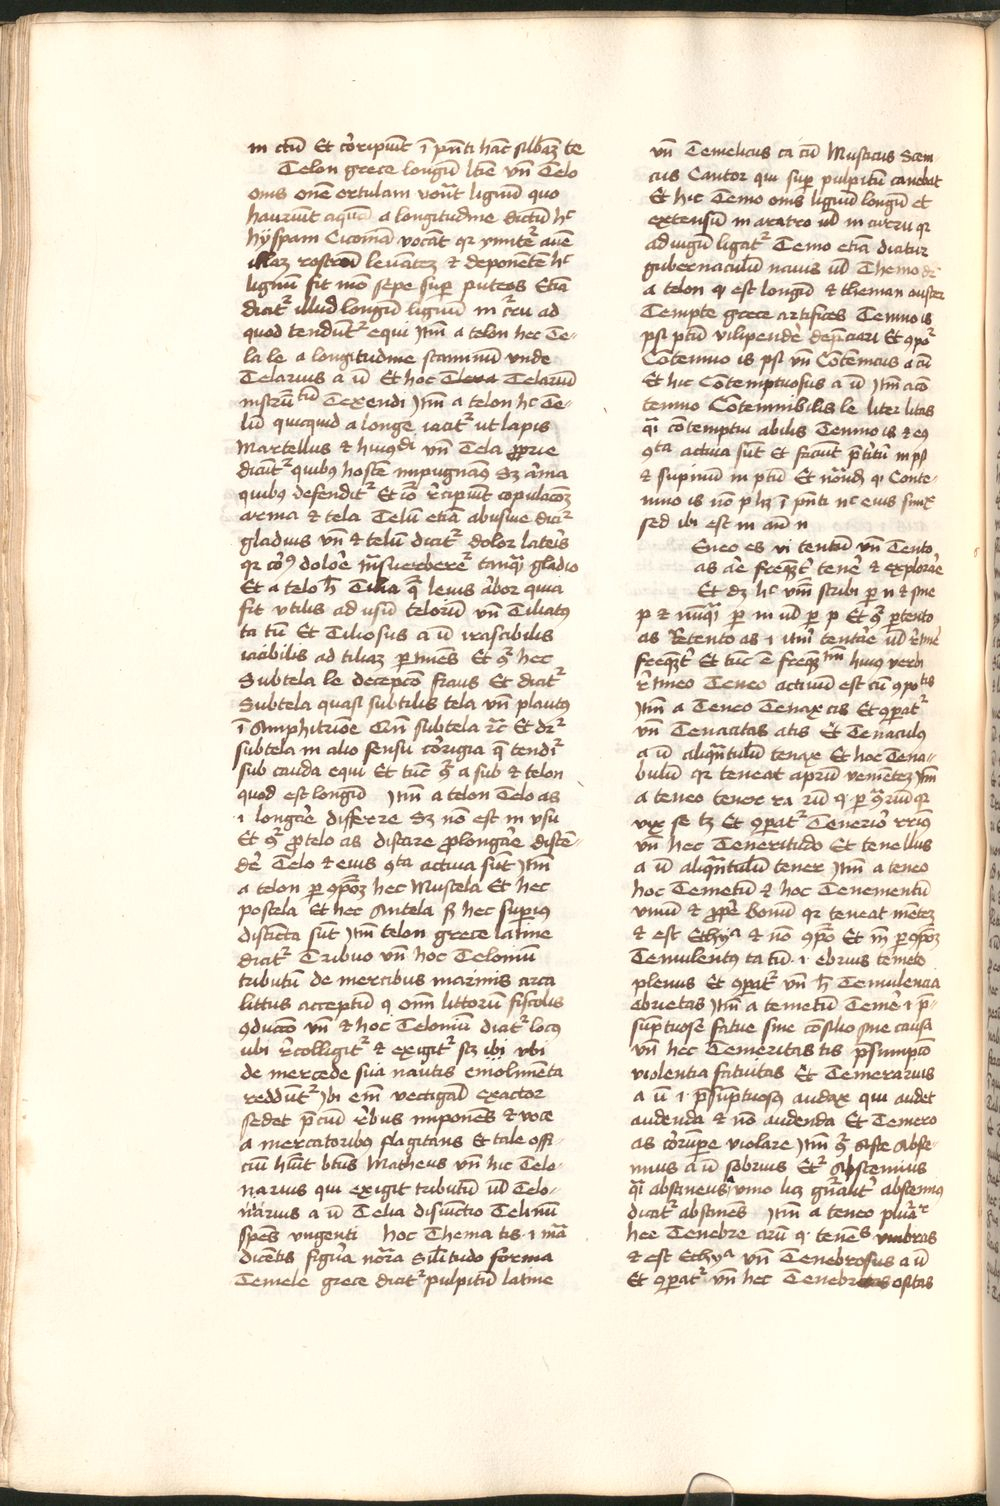 in ctū Et cōripiūt ī pn̄ti hāc sillbaꝫ te
Telon grece longū ltīe vn̄ Telo
onis onē ortulam vocāt lignū quo
hauriūt aquā a longitudine dictū hͨ
hÿspam Ciconiā vocāt qr ymitet᷑ auē
illaꝫ rostrū leuāteꝫ ⁊ deponētē hͨ
lignū fit nō sepe sup puteos Etiā
dicit᷑ illud longū lignū in cʳru ad
quod tendūt᷑ equi Itm̄ a telon hec Te-
la le a longitudine staminū vnde
Telarius a ū Et hoc Telera Telariū
instrūtū Texendi Itm̄ a telon hͨ Te-
lū quicquid a longe iacit᷑ ut lapis
Martellus ⁊ huiꝰdi vn̄ Tela ꝓprie
dicūt᷑ quibꝰ hostē impugnāꝰ Sꝫ arma
quibꝰ defendit᷑ Et iō rʳcipiūt copulacōꝫ
arma ⁊ tela Telū etiā abusiue dicit᷑
gladius vn̄ ⁊ telū dicit᷑ dolor lateris
qr corꝰ dolore
Et a telo h̄ Tilia q̄ leuis arbor quia
fit vtilis ad usū telorū vn̄ Tiliatꝰ
ta tū Et Tiliosus a ū irascibilis
iacibilis ad tiliaꝫ ꝑtinēs Et ꝯͬ hec
Subtela le decepcō fraus Et dicit᷑
Subtela quasi subtilis tela vn̄ plautꝰ
ī Amphitrioē Cum subtela rc̄ Et dr᷑
subtela in alio sensu corrigia q̄ tendit᷑
sub cauda equi Et tūc ꝯͬ a sub ⁊ telon
quod est longū Itm̄ a telon Telo as
i longare differre Sꝫ nō est in vsu
Et ꝯͬ ꝓtelo as distare ꝓlongare distē-
dere Telo ⁊ eius ꝯta actiua sūt Itm̄
a telon per ꝯpōꝫ hec Mustela Et hec
postela Et hec Antela Sꝫ hec supiꝰ
distīcta sūt Itm̄ telon grece latine
dicit᷑ Tribuo vn̄ hoc Teloniū
tributū de mercibus marinis circa
littus acceptū q̄ omī littorū fiscalis
ꝯduccō vn̄ ⁊ hoc Teloniū dicit᷑ locꝰ
ubi rʳcolligit᷑ ⁊ exigit᷑ scꝫ ibi vbi
de mercede sua nautis emolimēta
reddūt᷑ Ibi em̄ vectigaliū exactor
sedet pʳciū rebus imponēs ⁊ voce
a mercatoribꝰ flagitans Et tale offi-
ciū hūit btūs Matheus vn̄ hic Telo-
narius qui exigit tributū ul̄ Telo-
narius a ū Telia disiūctio Telinū
spēs vngenti hoc Thema tis i mā
dicētis figura norā Sil̄itudo forma
Temele grece dicit᷑ pulpitū latine
vn̄ Temelicus ca cū Musicus Scen-
cus Cantor qui sup pulpitū canebat
Et hic Temo onis lignū longū et
extensū in aratro ul̄ in curru qr
ad iugū ligat᷑ Temo etiā dicitur
gubernaculū nauis ul̄ Themo dr
a telon qͥ est longū ⁊ theman auster
Tempte grece artifices Temno is
psi ptū vilipendē depciari Et ꝯpoʳ
Cōtemno is psi vn̄ Cōtemcus a cū
Et hic Cōtemptuosus a ū Itm̄ a cō
temno Cōtemnibilis le liter litas
qͣi cotemptui abilis Temno is ⁊ eꝰ
ꝯta actiua sūt Et faciūt pʳtitū in psi
⁊ supinū in ptū Et nōndꝫ qͥ Conte-
mno is nō p hꝫ ī pn̄ti nͨ eius simᵉ
sed ibi est m aut n
Teneo es vi tentū vn̄ Tento
as are freqͣt tenē ⁊ explorare
Et dꝫ hͨ vnū scribi per n ⁊ sine
p ⁊ nūqͣ per m ul̄ per p Et ꝯͬ pertento
as Retento as i itm̄ tentare ul̄
freqͣt Et tūc ē freqtm huiꝰ verbi
rʳtineo Teneo actiuū est cū ꝯpotis
Itm̄ a Teneo Tenax cis Et ꝯparat᷑
vn̄ Tenacitas atis Et Tenaculꝰ
a ū aliqͣntulū tenax Et hoc Tena-
bulū qr teneat aprū venietē Itm̄
a teneo tener ra rū qͥ per ꝯrariū qr
vix se tꝫ Et ꝯparat᷑ Tenerior rriꝰ
vn̄ hec Teneritudo Et tenellus
a ū aliqͣntulū tener Itm̄ a teneo
hoc Temetū ⁊ hoc Tenementū
vinū ⁊ ꝓpe bonū qr teneat mēteꝫ
⁊ est Ethyᵃ ⁊ nō ꝯpō Et in per ꝯpōꝫ
Temulentꝰ ta tū i ebrius temeto
plenus Et ꝯparat᷑ vn̄ h̄ Temulencia
ebrietas Itm̄ a temetū Temere i p̄-
sumptuose fatue sine cōsilio sine causa
vn̄ hec Temeritas tis p̄sumpcō
violentia fatuitas Et Temerarius
a ū i p̄sumptuosꝰ audax qui audet
audenda ⁊ nō audenda Et Temero
as corrumpe violare Itm̄ ꝯͬ Abste Abste-
mius a ū sobrius Et᷑ Abstemius
qͣi abstineus vino lic gn̄alit᷑ abstemiꝰ
dicit᷑ abstinēs Itm̄ a teneo plurʳ
hee Tenebre arū qͥ tenēs vmbras
⁊ est Ethyᵃ vn̄ Tenebrosus a ū
Et ꝯparat᷑ vn̄ hec Tenebrositas